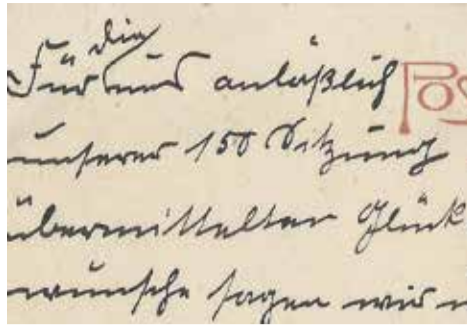 die
Für uns anläßlich
POS
unserer 150 Sitzung
übermittelten Glück
wünsche sagen wir